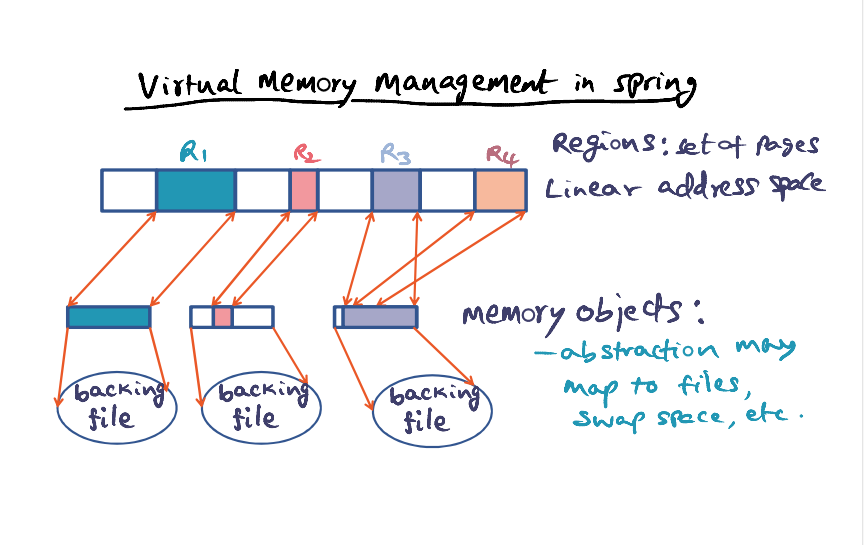 Virtual Memory Management in spring
R1 R2 R3 R4
Regions: set of pages
Linear address space
memory objects:
– abstraction may
map to files,
swap space, etc.
backing
file
backing
file
backing
file